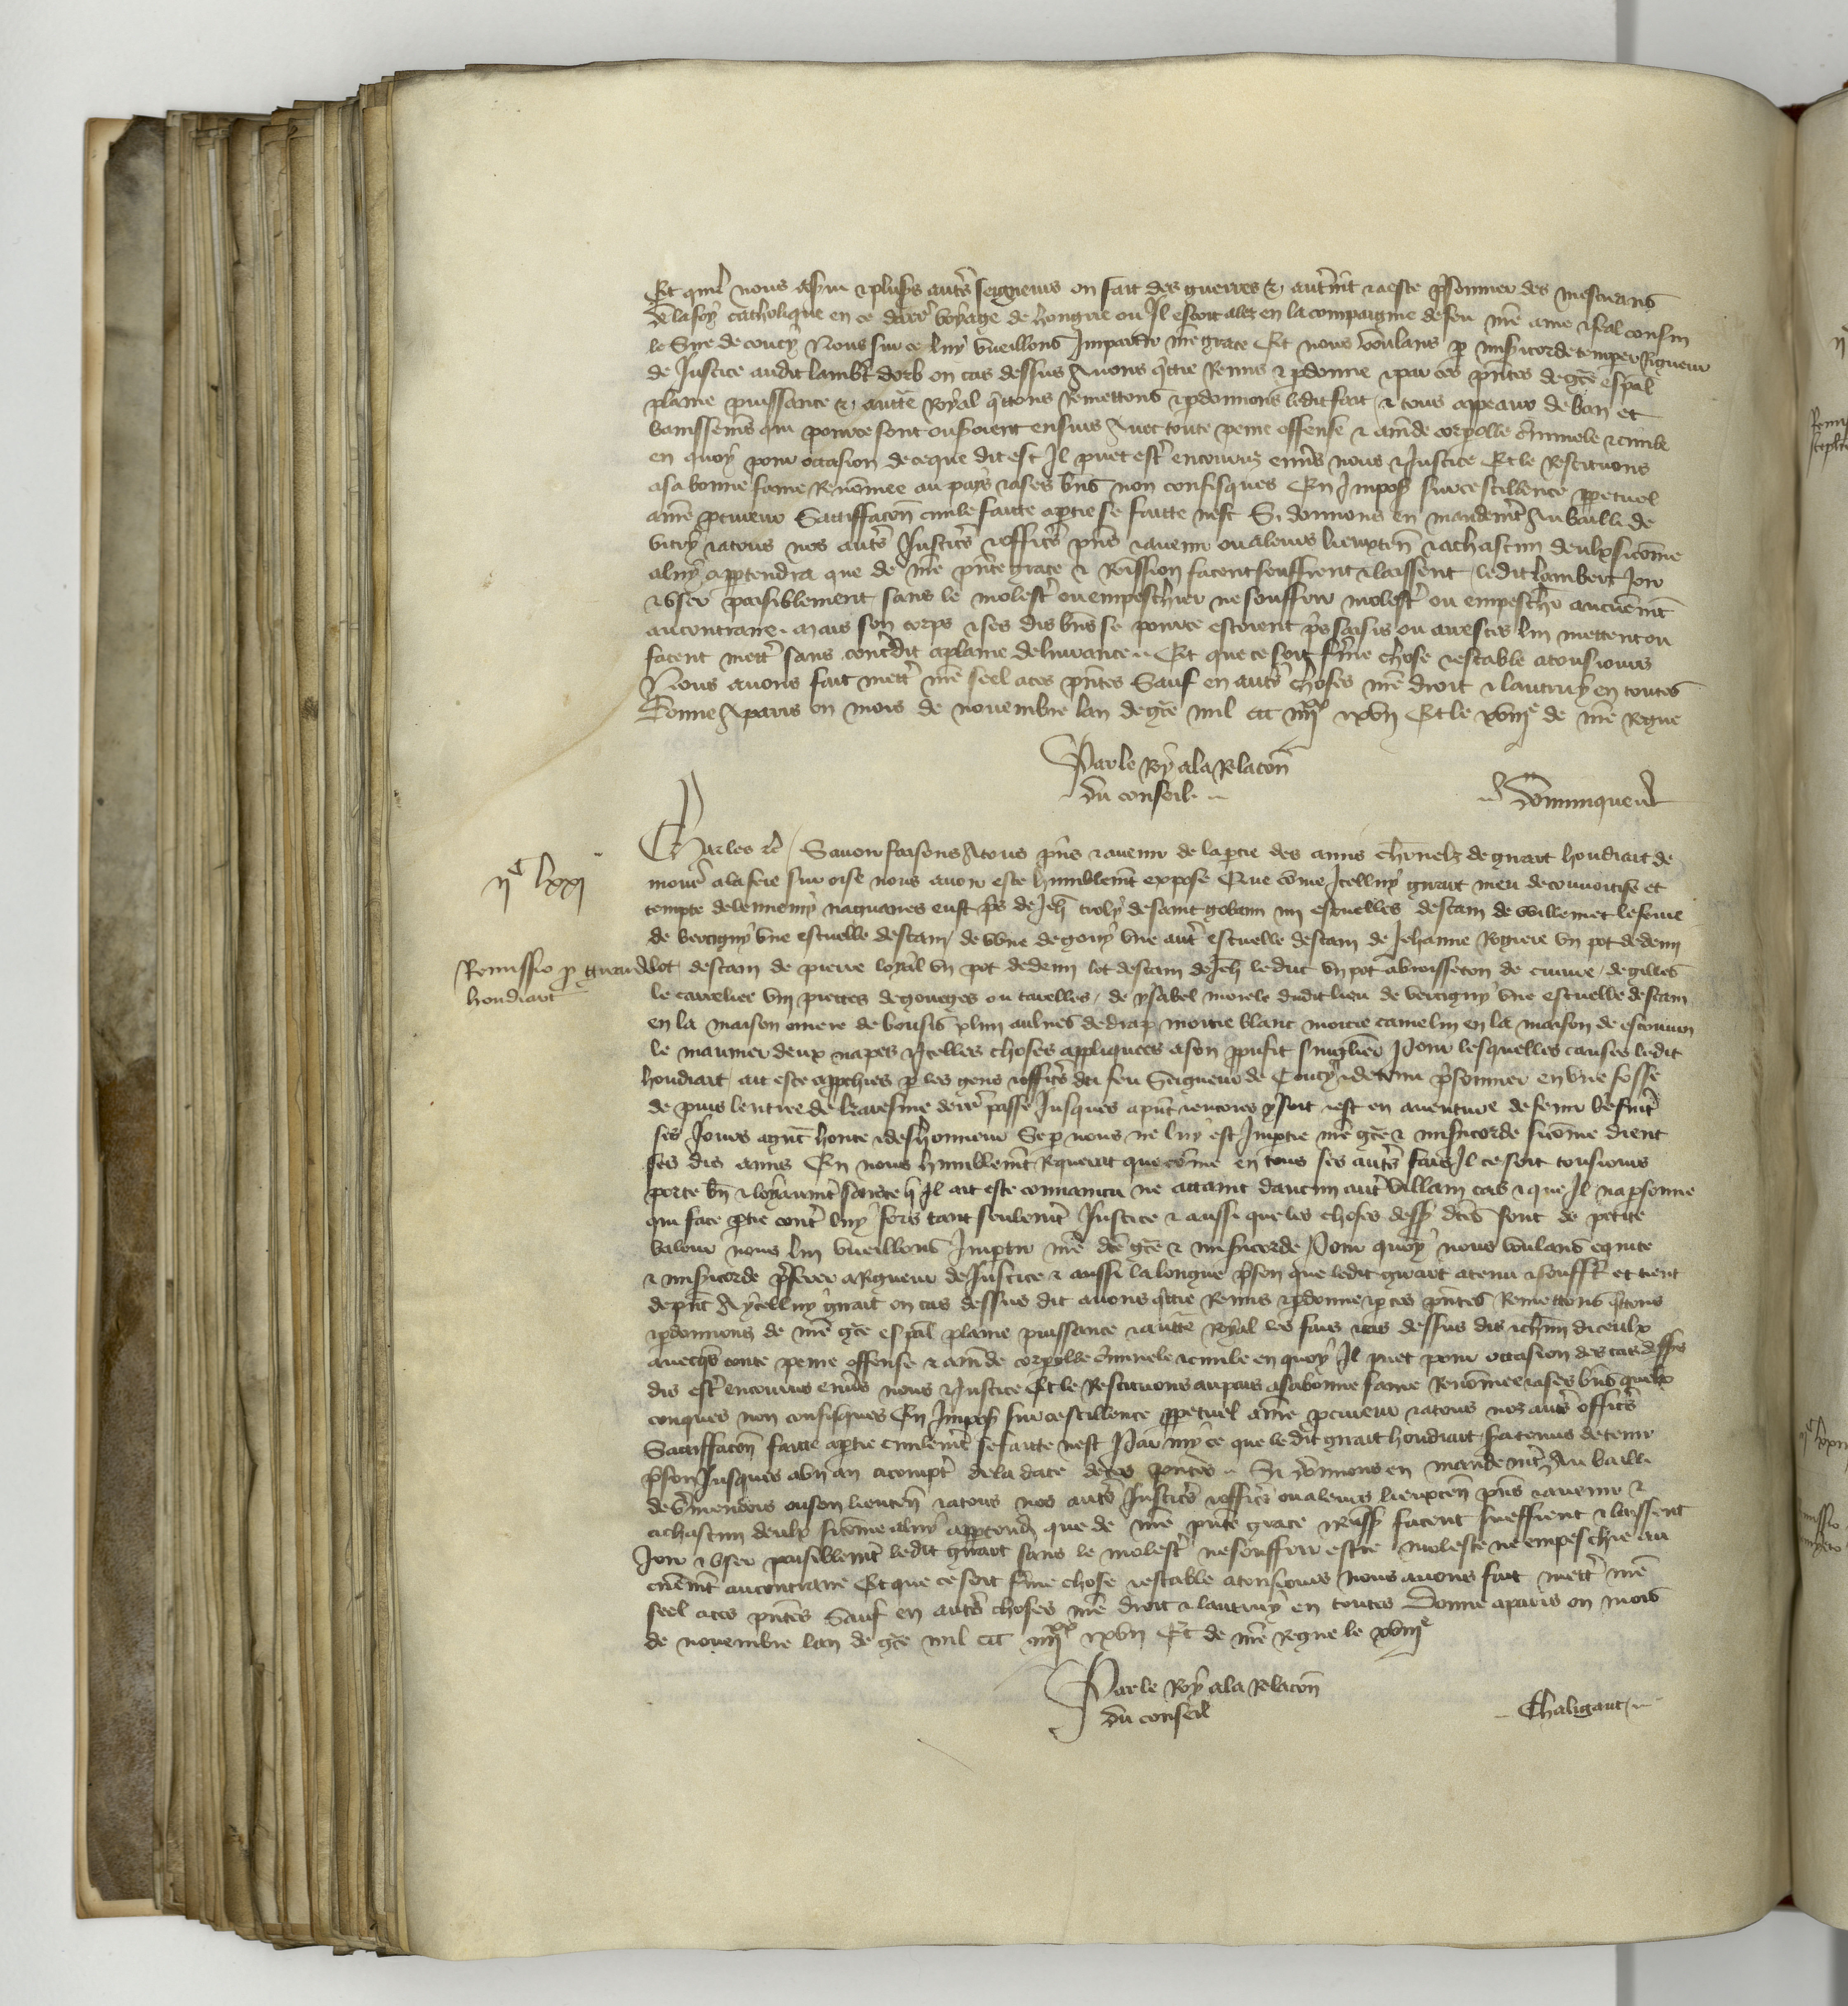 Et quil nous a servi et plusrs autrs seigneurs on fait des guerres et autremt et a este prisonnier des mescreans
de la foy catholique en ce derrr voyage de hongrie ou Il estoit alez en la compaignie de feu nre ame et feal cousin
le Sire de coucy Nous sur ce luy vueillons Impartir nre grace Et nous voulans p misericorde temperer Rigueur
de Justice audit lambt dorb ou cas dessus Avons qttie Remis et pdonne et par ces pntes de gce espal
plaine puissance et autte Royal qttons Remettons et pdonnons ledit fait et tous appeaux de ban et
banissemens qui pource sont ou seroient ensuis Avec toute peine offense et amde corpolle criminele et civile
en quoy pour occasion de ce que dit est Il puet estr encouruz envrs nous et Justice Et le Restituons
a sa bonne fame Renomee au pays et a ses bns non confisques En Impost sur ce scillence ppetuel
a nre pcureur Sattiffacon civile faitte a ptie se faitte nest Si donnons en mandemt Au bailli de
vitry et a tous nos autrs Justicrs et officrs pns et avenir ou a leurs lieuxten et a chascun deulx si come
a luy apptendra que de nre pnte grace et Remission facent seuffrent et laissent ledit Lambert Joir
et User paisiblement sans le molestr ou empeschier ne souffrir molestr ou empeschr aucunemt
au contraire. mais son corps et ses dis bns se pource estoient prs saisis ou arrestes lui mettent ou
facent mettr sans contredit a plaine delivrance Et que ce soit ferme chose et estable a tousiours
Nous avons fait mettr nre seel a ces pntes Sauf en autrs choses nre droit et lautruy en toutes
Donne A paris ou mois de novembre lan de gce mil ccc iiiixx et xvii Et le xviiie de nre Regne
Par le Roy a la Relacon
du conseil
Dominique
Charles etc Savoir faisons A tous pns et avenir de la ptie des amis charnelz de girart houdiart de
iic lxxi
mouy a la fere sur oise nous avoir este humblemt expose Que come Icelluy girart meu de convoitise et
tempte de lennemy naguaires eust prs de Jeh troly de saint gobain iii escuelles destain de Willemet lefeure
de verrigny Une escuelle destain de Une autr escuelle destain de Jehanne Rogiere un pot de demi
Remissio p girardo
houdiart
lot destain de pierre loyal un pot de demi lot destain de Jeh leduc un pot a broisseton de cuivre de gilles
le carrelier viii pieces de gouges ou tarelles de ysabel morele dudit lieu de verrigny une escuelle destain
en la maison aulnes de drap moitie blanc moitie camelin en la maison de
le maunier deux napes et Icelles choses appliquees a son proufit singulier Pour lesquelles causes ledit
houdiart ait este apphies p les gens et officrs du feu Seigneur de Coucy et detenu prisonnier en une fosse
de puis lentree de karesme derrr passe Jusques a pnt et encores y soit et est en aventure de fenir briefmt
ses Jours a grant honte et deshonneur Se p nous ne luy est Imptie nre gce et misericorde si come dient
ses dis amis En nous humblemt Requerant que come en tous ses autrs fais Il ce soit tousiours
porte bn et loyaumt sans ce q Il ait este convaincu ne attaint daucun autr villain cas et que Il na psonne
qui face ptie contr luy fors tant seulemt Justice et aussi que les choses dessus dtes sont de petite
valeur nous lui vueillons Imptir nre dte gce et misericorde Pour quoy nous voulans equite
et misericorde preferer a Rigueur de Justice et aussi la longue prison que ledit girart a tenu et souffert et tient
de pnt A ycelluy girart ou cas dessus dit avons qttie Remis et pdonne et p ces pntes Remettons qttons
et pdonnons de nre gce espal plaine puissance et autte Royal les fais et cas dessus dis et chun diceulx
avecqs toute peine offense et amde corpolle criminele et civile en quoy Il puet pour occasion des cas dessus
dis estr encourus envrs nous et Justice Et le Restituons au pais a sa bonne fame Renomee et a ses bns quelx
conques non confisques En Impost sur ce scillence ppetuel a nre pcureur et a tous noz autrs officrs
Sattiffacon faitte a ptie civilemt se faitte nest Parmy ce que ledit girart houdiart sera tenus de tenir
prison Jusques a un an a comptr de la date de ces pntes Si donnons en mandemt Au bailli
de vermendois ou son lieuten et a tous nos autrs Justicrs et officrs ou a leurs lieuxten pns et avenir et
a chascun deulx si come a luy apptendra que de nre pnte grace et Remiss facent sueffrent et laissent
Joir et User paisiblemt ledit girart sans le molestr ne souffrir estre moleste ne empeschie au
cunemt au contraire Et que ce soit ferme chose et estable a tousiours nous avons fait mettr nre
seel a ces pntes Sauf en autrs choses nre droit et lautruy en toutes Donne a paris ou mois
de novembre lan de gce mil ccc iiiixx et xvii Et de nre Regne le xviiie
Par le Roy a la Relacon
du conseil
Chaligaut